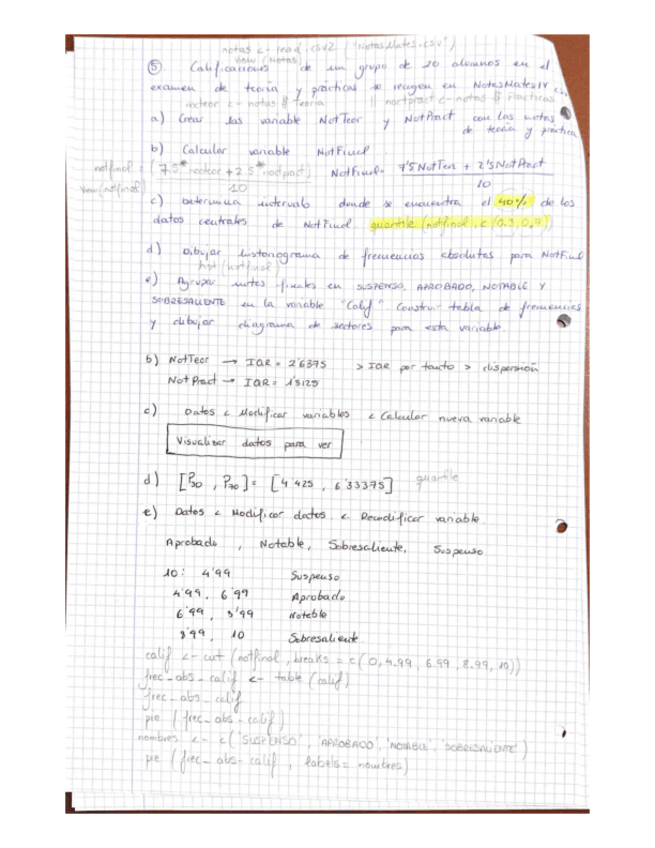 notas <- read.csv2 ("NotasMates.csv")
View (Notas)
⑤. Calificaciones de un grupo de 20 alumnos en el
examen de teoría y prácticas se recogen en NotesMates IV
nocteor <- notas $ teoria || noctpract <- notas $ practicas
a) Crear las variable NotTeor y NotPract con las notas
de teoría y práctica
b) Calcular variable NotFinal
notfinal = (7.5*nocteor + 2.5*noctpract) / 10 NotFinal = 7'5 NotTeor + 2'5 NotPract / 10
View(notfinal)
c) Determina intervalo donde se encuentra el 40% de los
datos centrales de NotFinal. quantile (notfinal, c (0.3, 0.7))
d) Dibujar histograma de frecuencias absolutas para NotFinal
hist (notfinal)
e) Agrupar notas finales en SUSPENSO, APROBADO, NOTABLE Y
SOBRESALIENTE en la variable "Calif". Construir tabla de frecuencias
y dibujar diagrama de sectores para esta variable.
b) NotTeor → IQR = 2'6375 > IQR por tanto > dispersión
NotPract → IQR = 1'3125
c) Datos < Modificar variables < Calcular nueva variable
Visualizar datos para ver
d) [P30 , P70] = [4'425 , 6'33375] quantile
e) Datos < Modificar datos < Recodificar variable.
Aprobado , Notable, Sobresaliente, Suspenso
10: 4'99 Suspenso
4'99, 6'99 Aprobado
6'99, 8'99 Notable
8'99, 10 Sobresaliente.
calif <- cut (notfinal, breaks = c (0, 4.99, 6.99, 8.99, 10))
frec_abs_calif <- table (calif)
frec_abs_calif
pie (frec_abs_calif)
nombres <- c('SUSPENSO', 'APROBADO', 'NOTABLE', 'SOBRESALIENTE')
pie (frec_abs_calif, labels = nombres)